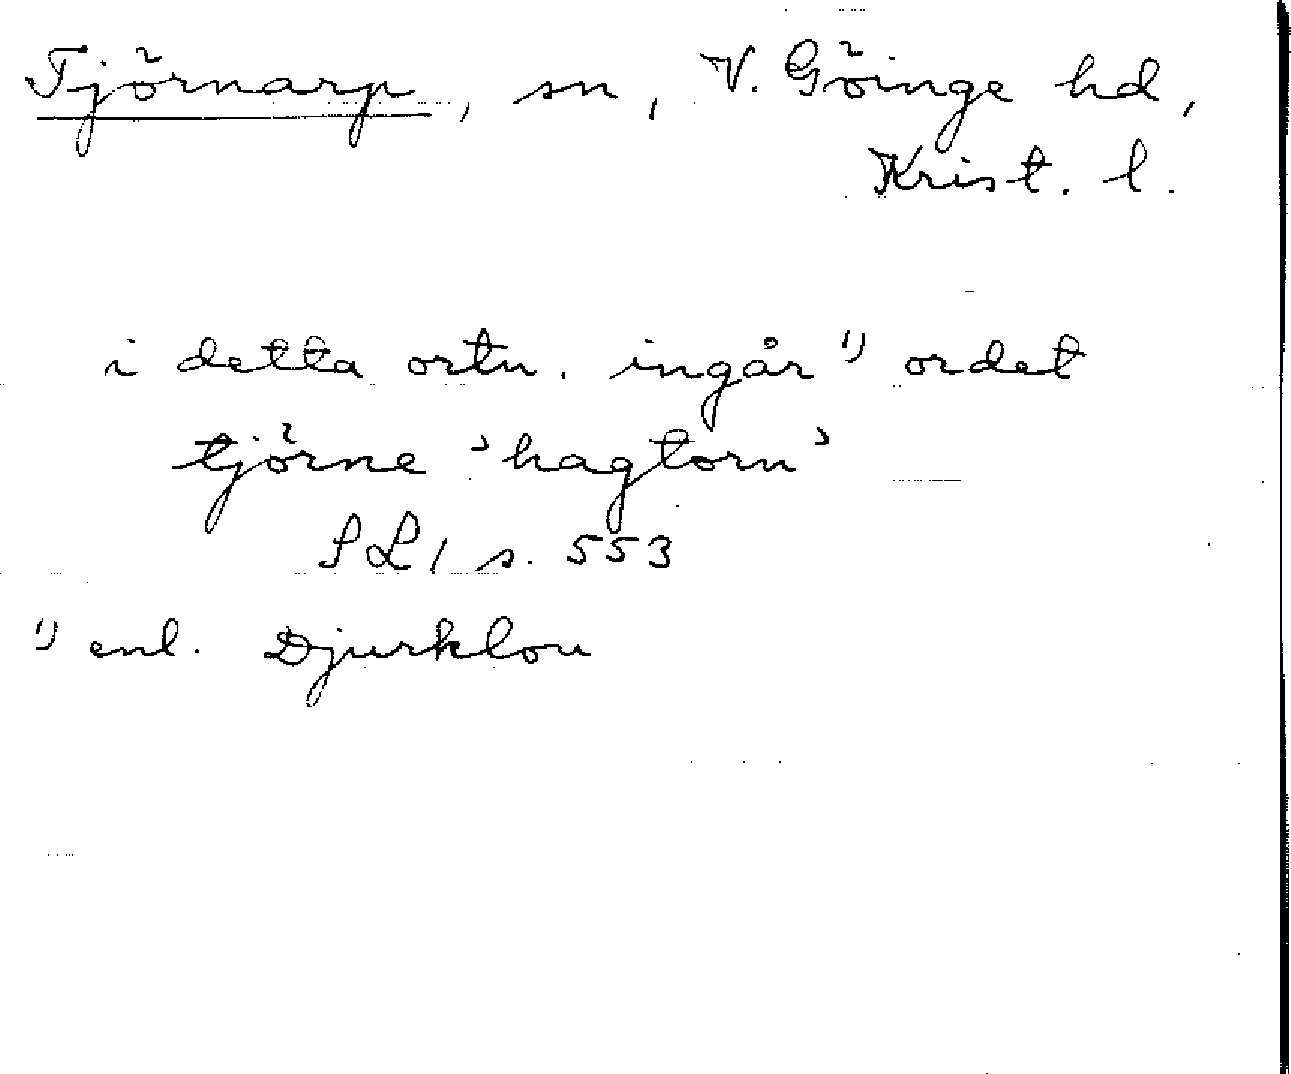 Tjörnarp, sn, V. Göinge hd,
Krist. l.
i detta ortn. ingår 1) ordet
tjörne 'hagtorn'
SL 1 s. 553
1) enl. Djurklou